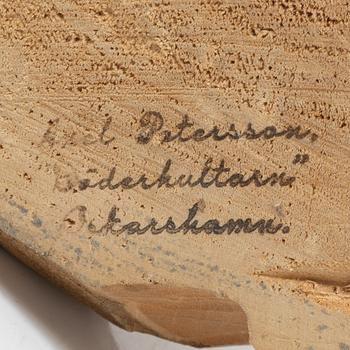 Axel Petersson.
"Döderhultarn"
Oskarshamn.